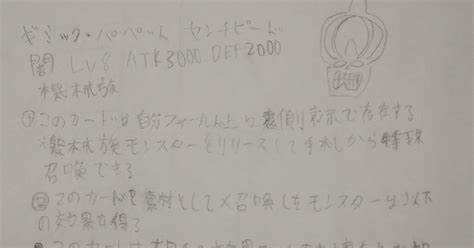 ギミック・パペット センチピード
闇 LV8 ATK3000 DEF2000
機械族
①このカードは自分フィールド上に裏側表示で存在する
機械族モンスターをリリースして手札から特殊
召喚できる
②このカードを素材としてX召喚したモンスターは以下
の効果を得る